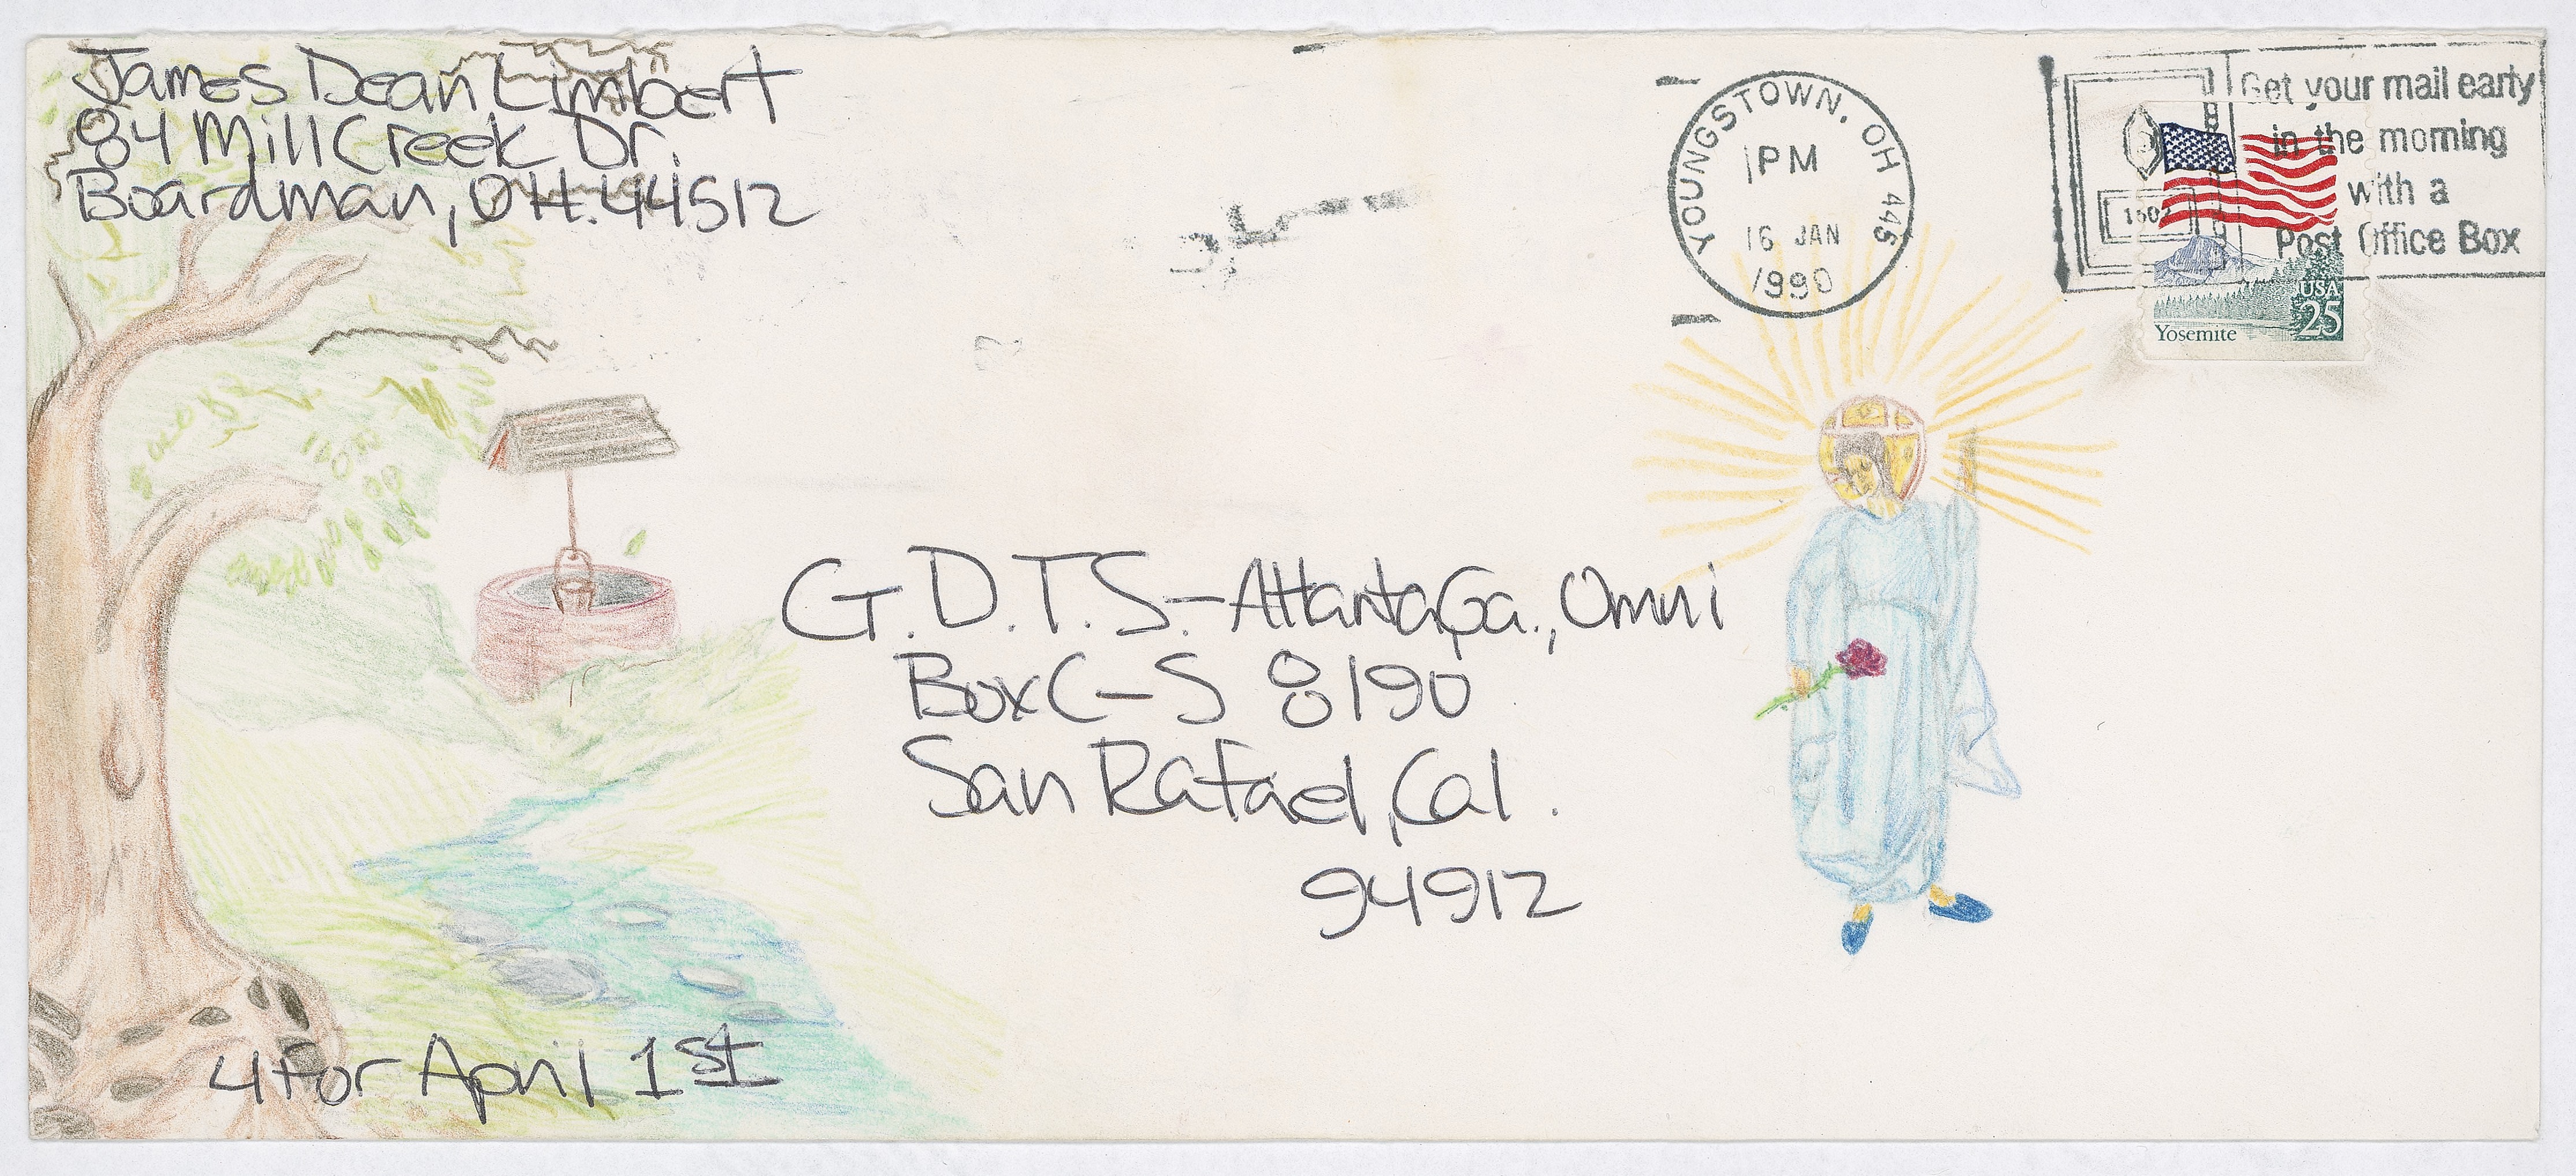 James Dean Limbert
84 Mill Creek Dr.
Boardman, OH. 44512
YOUNGSTOWN, OH 445
PM
16 JAN
1990
Get your mail early
in the morning
with a
Post Office Box
USA
25
Yosemite
G.D.T.S.-Atlanta, Ga., Omni
Box C-S 8190
San Rafael, Cal.
94912
4 For April 1st